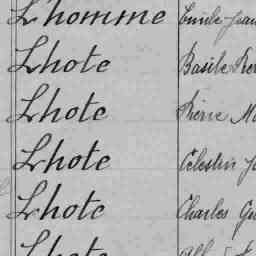 Lhomme Emile Jean
Lhote Basile
Lhote Pierre
Lhote Célestin
Lhote Charles
Lhote